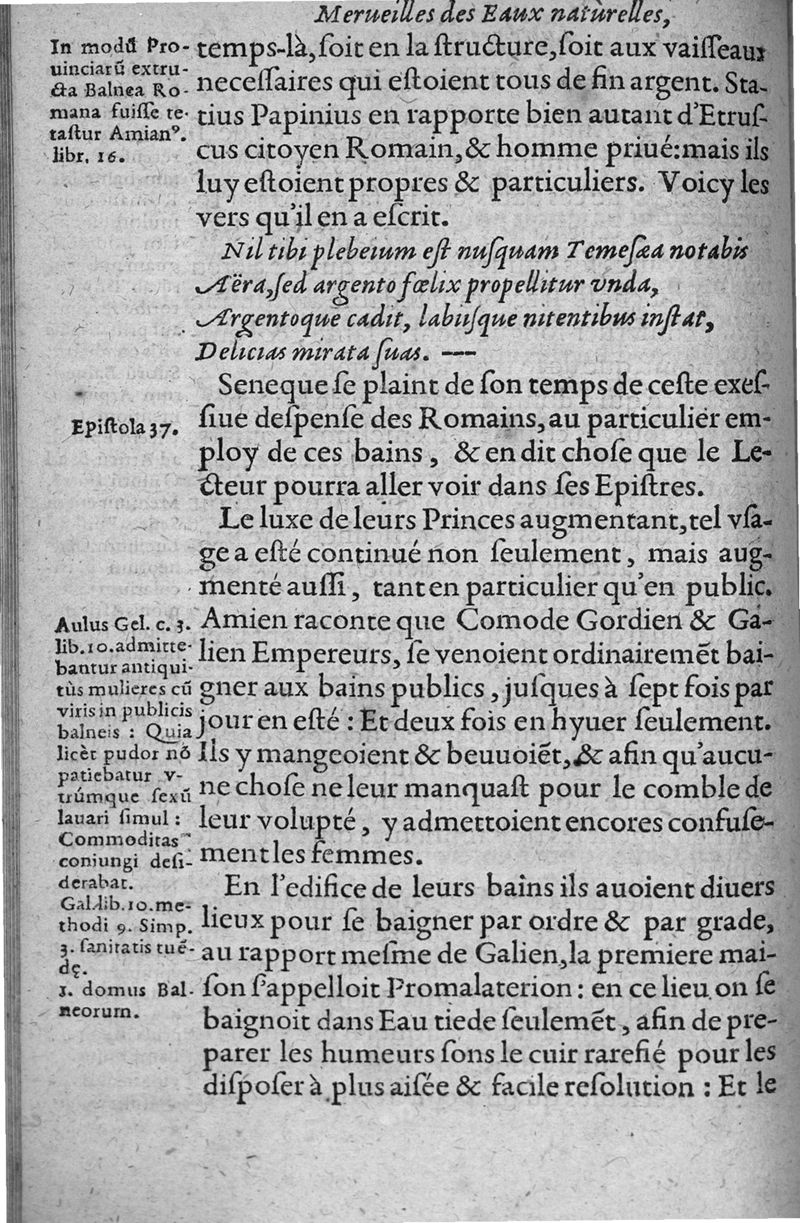 Merueilles des Eaux naturelles,
In modũ Pro-
uinciarũ extru-
cta Balnea Ro-
mana fuiſſe te-
taſtur Amianꝰ.
libr. 16.
temps-là, ſoit en la ſtructure, ſoit aux vaiſſeaux
neceſſaires qui eſtoient tous de fin argent. Sta-
tius Papinius en rapporte bien autant d'Etruſ-
cus citoyen Romain, & homme priué: mais ils
luy eſtoient propres & particuliers. Voicy les
vers qu'il en a eſcrit.
Nil tibi plebeium eſt nuſquam Temeſæa notabis
Aëra, ſed argento fœlix propellitur vnda,
Argentoque cadit, labiiſque nitentibus inſtat,
Delicias mirata ſuas. —
Seneque ſe plaint de ſon temps de ceſte exeſ-
Epiſtola 37.
ſiue deſpenſe des Romains, au particulier em-
ploy de ces bains, & en dit choſe que le Le-
cteur pourra aller voir dans ſes Epiſtres.
Le luxe de leurs Princes augmentant, tel vſa-
ge a eſté continué non ſeulement, mais aug-
menté auſſi, tant en particulier qu'en public.
Aulus Gel. c. 3.
lib. 10. admitte-
bantur antiqui-
tùs mulieres cũ
viris in publicis
balneis : Quia
licèt pudor nõ
patiebatur v-
trúmque ſexũ
lauari ſimul :
Commoditas
coniungi deſi-
derabat.
Gal. lib. 10. me-
thodi 9. Simp.
3. ſanitatis tuẽ-
dę.
1. domus Bal-
neorum.
Amien raconte que Comode Gordien & Ga-
lien Empereurs, ſe venoient ordinairemẽt bai-
gner aux bains publics, juſques à ſept fois par
jour en eſté : Et deux fois en hyuer ſeulement.
Ils y mangeoient & beuuoiẽt, & afin qu'aucu-
ne choſe ne leur manquaſt pour le comble de
leur volupté, y admettoient encores confuſe-
ment les femmes.
En l'edifice de leurs bains ils auoient diuers
lieux pour ſe baigner par ordre & par grade,
au rapport meſme de Galien, la premiere mai-
ſon ſ'appelloit Promalaterion : en ce lieu on ſe
baignoit dans Eau tiede ſeulemẽt, afin de pre-
parer les humeurs ſons le cuir rarefié pour les
diſpoſer à plus aiſée & facile reſolution : Et le